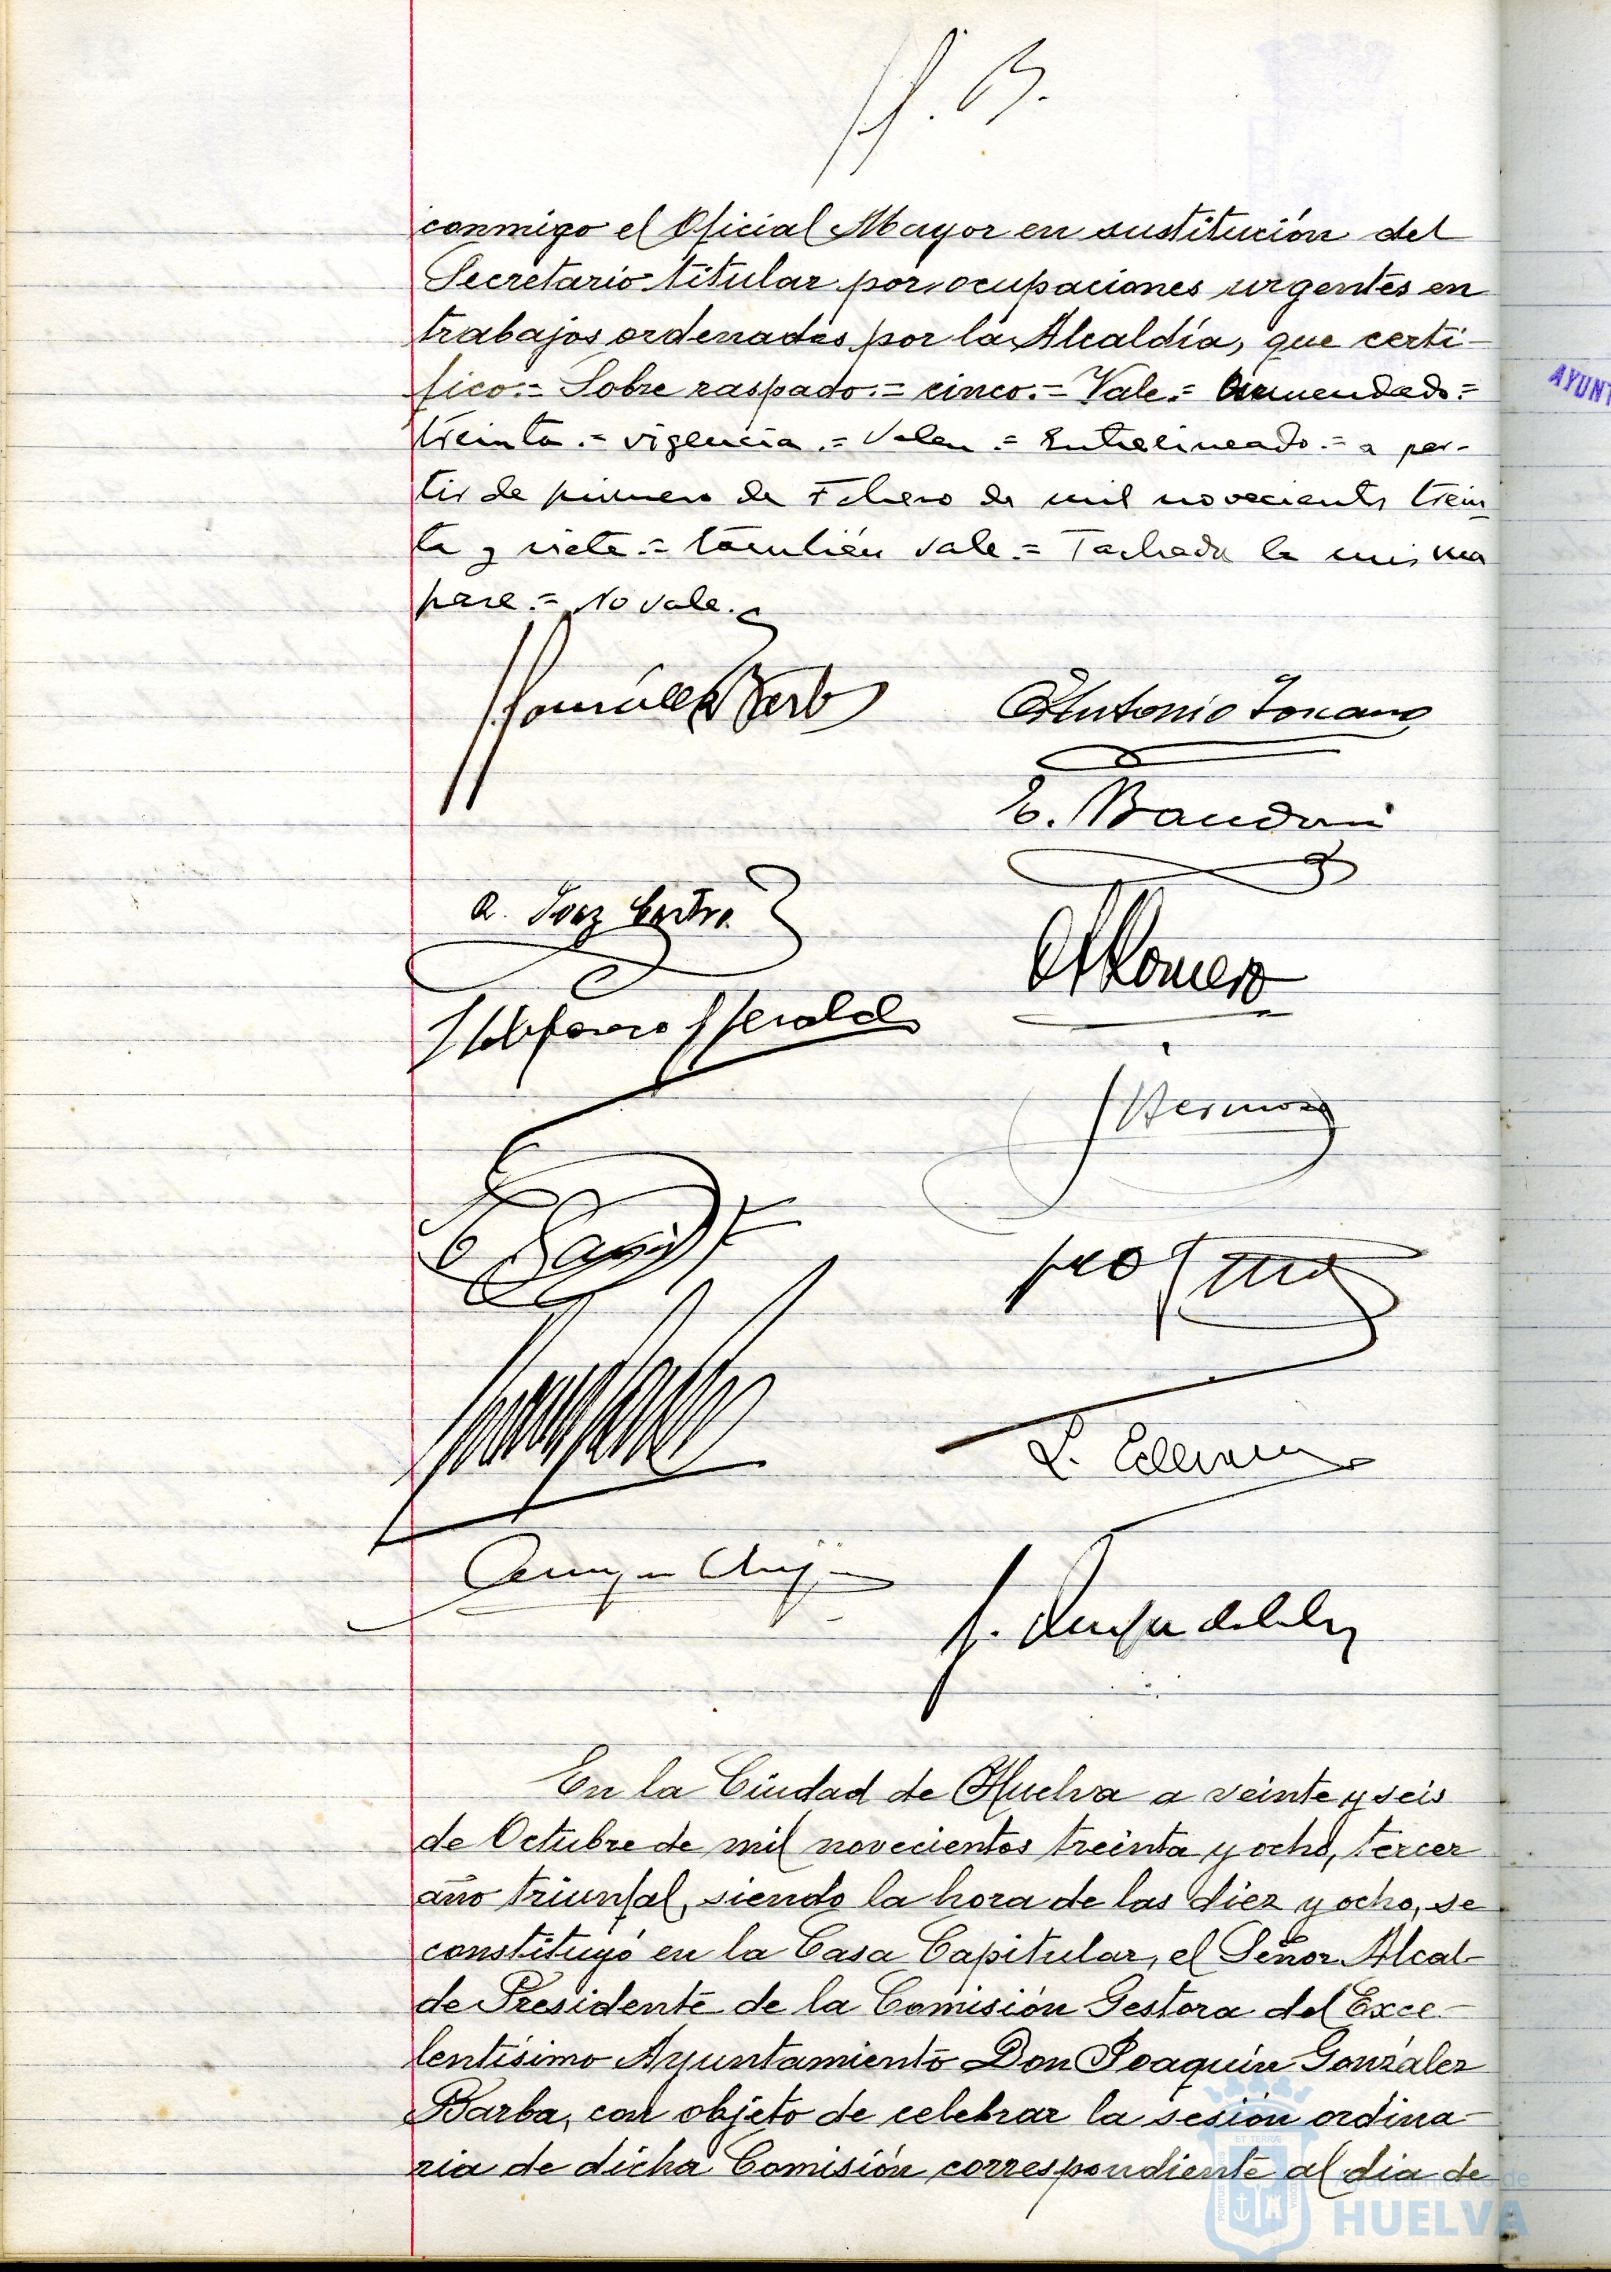 conmigo el Oficial Mayor en sustitución del
Secretario titular por ocupaciones urgentes en
trabajos ordenados por la Alcaldía, que certi-
fico.= Sobre raspado.= cinco.= Vale.= Enmendado.=
treinta.= vigencia.= Valen.= Entrelineado.= a par-
tir de primero de Febrero de mil novecientos trein-
ta y siete.= también vale.= Tachada la misma
frase.= No vale.
González Barba
Antonio Toscano
E. Bandrni
R. Saez Castro
A Romero
Ildefonso
J Hermoso
L.
En la Ciudad de Huelva a veinte y seis
de Octubre de mil novecientos treinta y ocho, tercer
año triunfal, siendo la hora de las diez y ocho, se
constituyó en la Casa Capitular, el Señor Alcal-
de Presidente de la Comisión Gestora del Exce-
lentísimo Ayuntamiento Don Joaquín González
Barba, con objeto de celebrar la sesión ordina-
ria de dicha Comisión correspondiente al dia de
AYUNT
Ayuntamiento de
HUELVA